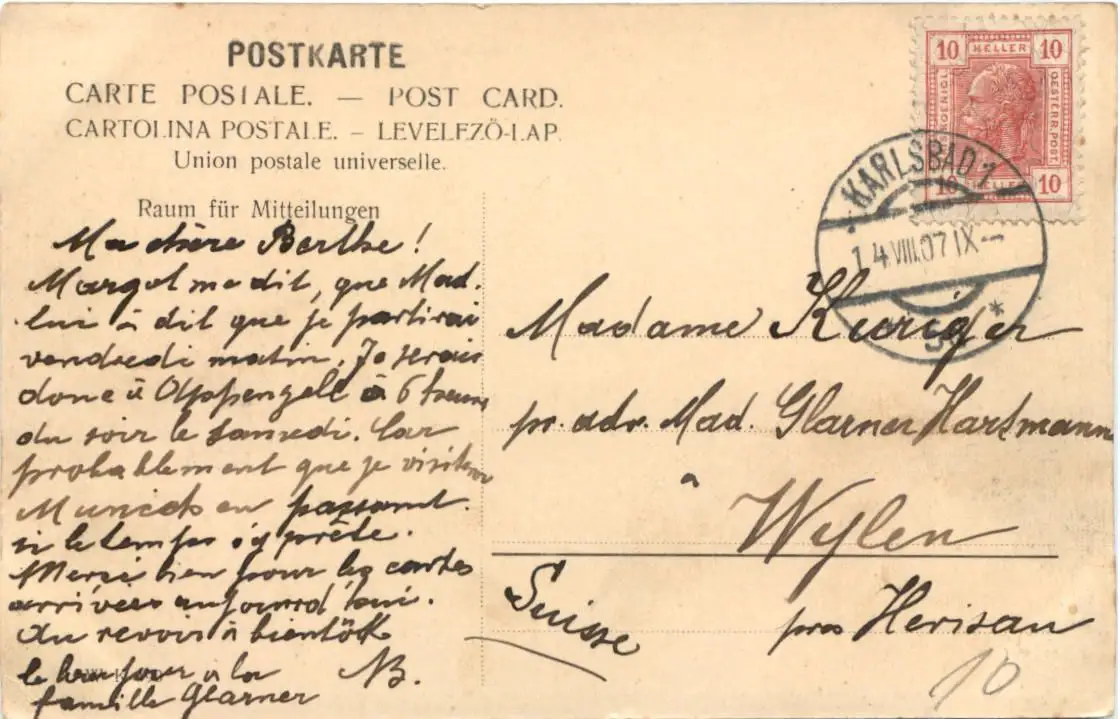 POSTKARTE
CARTE POSTALE. — POST CARD.
CARTOLINA POSTALE. – LEVELEZŐ-LAP.
Union postale universelle.
Raum für Mitteilungen
Ma chère Berthe!
Margot me dit, que Mad.
lui à dit que je partirai
vendredi matin. Je serais
donc à Appenzell à 6 heures
du soir le samedi. Car
probablement que je visiterai
Munich en passant.
si le temps s'y prête.
Merci bien pour les cartes
arrivées aujourd'hui.
Au revoir à bientôt
le bonjour à la
famille Glarner
NB.
10 HELLER 10
KAIS. KOENIGL.
OESTERR. POST.
10 HELLER 10
KARLSBAD 1
14 VIII.07 IX--
*
Madame Kuriger
pr. adr. Mad. Glarner Hartmann
à
Wylen
près Herisau
Suisse
10